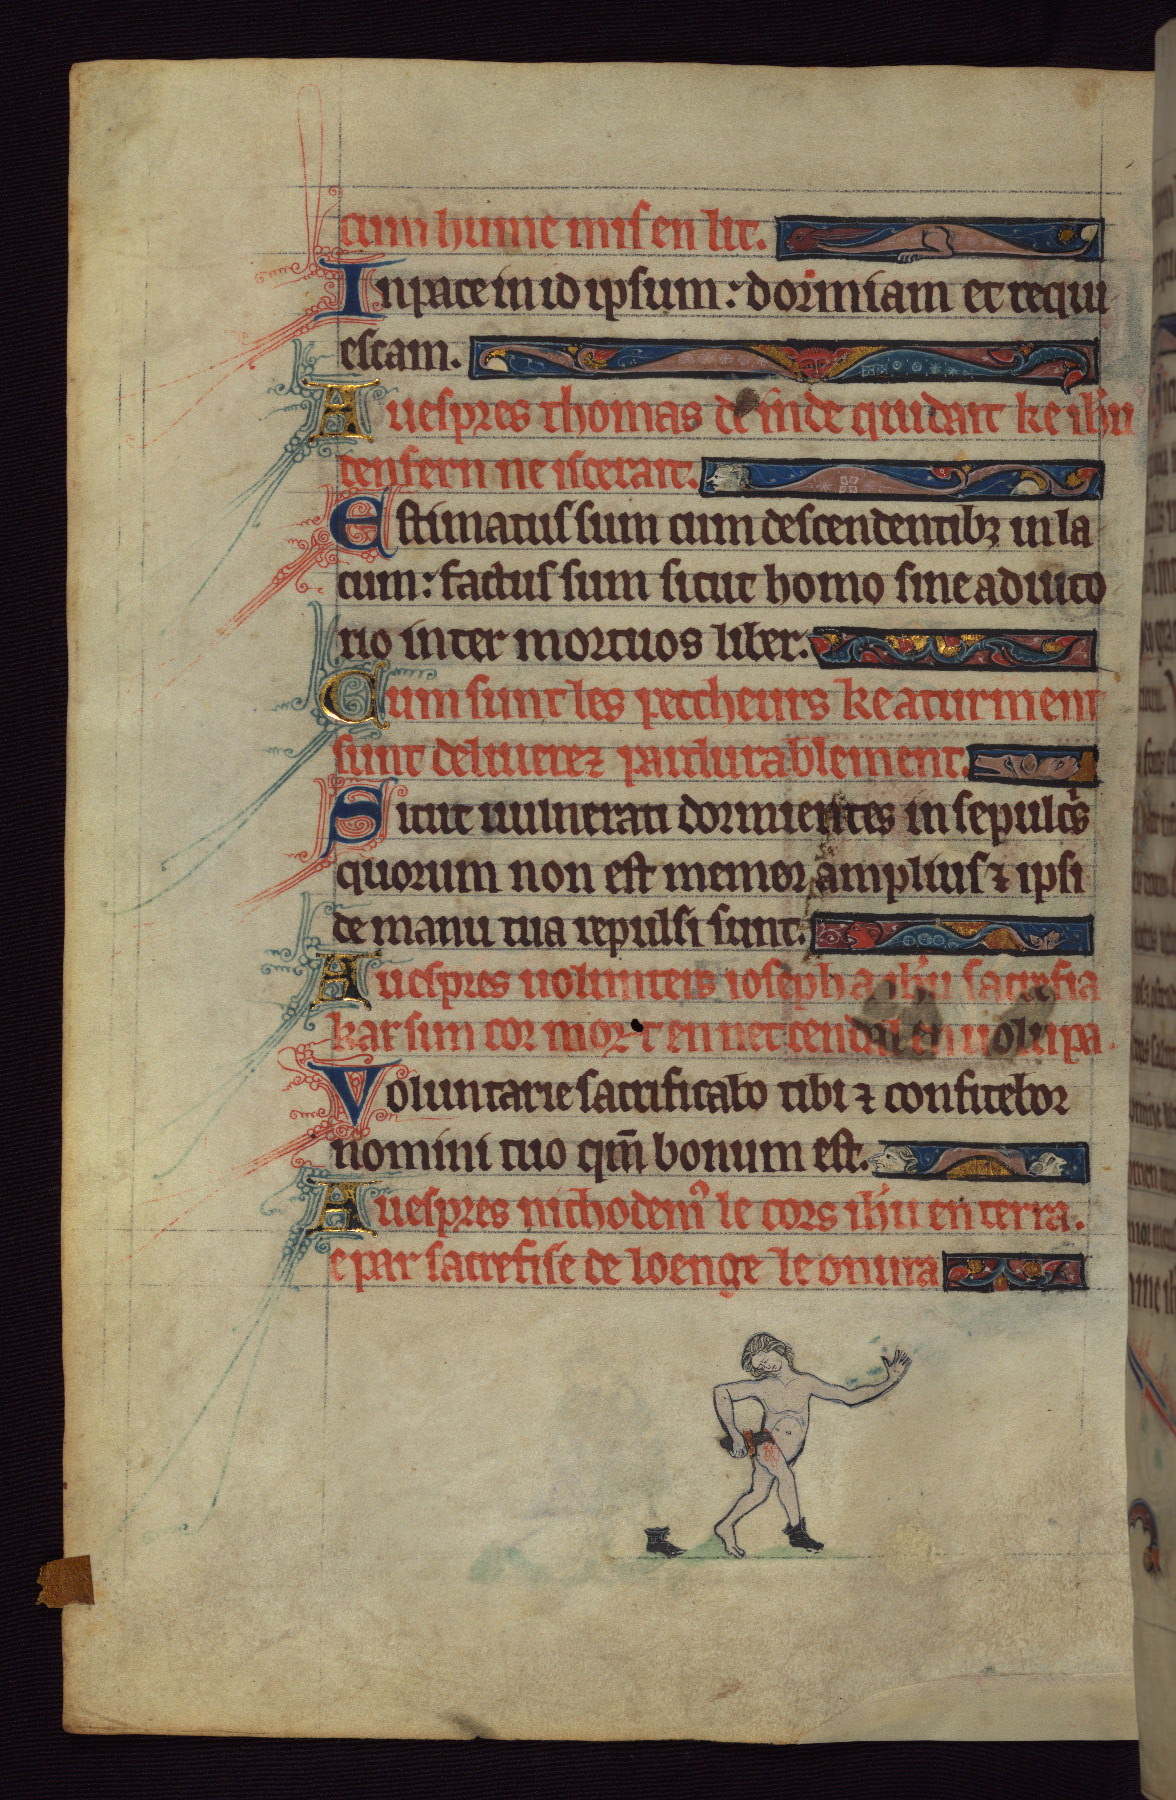 cum hume mis en lit.
In pace in id ipsum: dormiam et requi
escam.
A uespres thomas de inde quidait ke ihu
denfern ne isterait.
Estimatus sum cum descendentibz in la
cum: factus sum sicut homo sine adiuto
rio inter mortuos liber.
Cum sunt les peccheurs ke a turment
sunt deliuerez pardurablement.
Sicut uulnerati dormientes in sepulcs
quorum non est memor amplius ⁊ ipsi
de manu tua repulsi sunt.
A uespres uolunters ioseph a ihu sacrefia
kar sun cor mort en net cendal enuolupa.
Voluntarie sacrificabo tibi ⁊ confitebor
nomini tuo qm̄ bonum est.
A uespres nichodem⁹ le cors ihu en terra.
e par sacrefise de loenge le onura